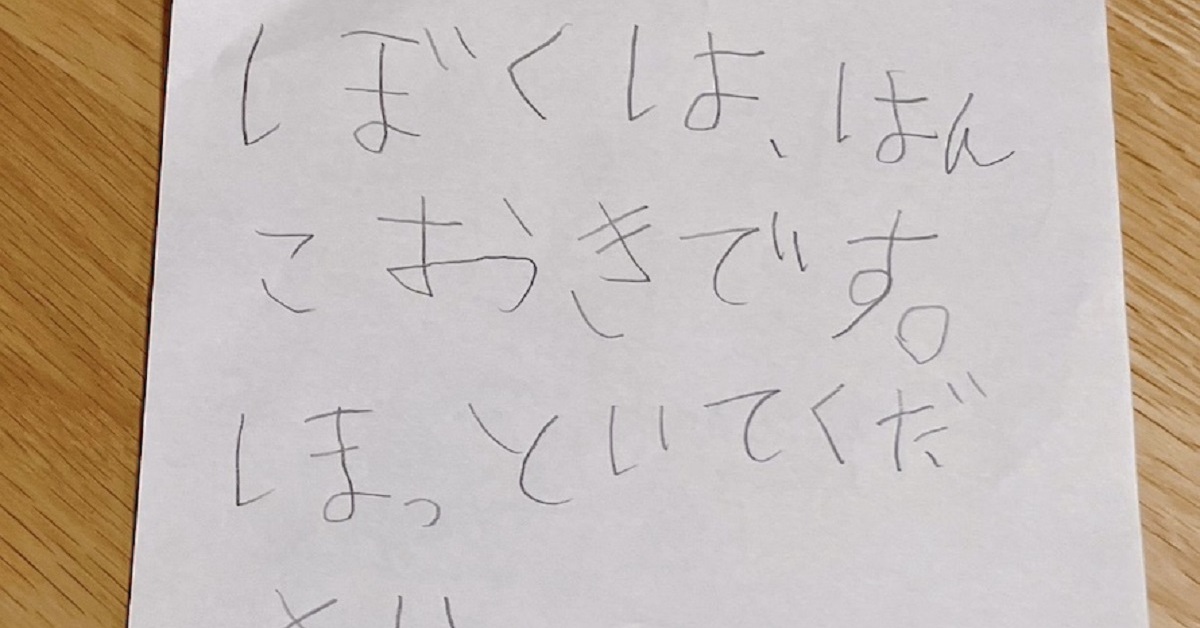 ぼくは、はん
こおきです。
ほっといてくだ
さい